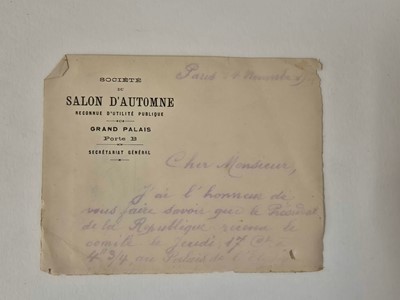 SOCIÉTÉ
DU
SALON D'AUTOMNE
RECONNUE D'UTILITÉ PUBLIQUE
GRAND PALAIS
Porte B
SECRÉTARIAT GÉNÉRAL
Paris
Cher Monsieur,
j'ai l'honneur de
vous faire savoir que le Président
de la République recevra le
comité le jeudi 17
4h 3/4 au Palais de l'